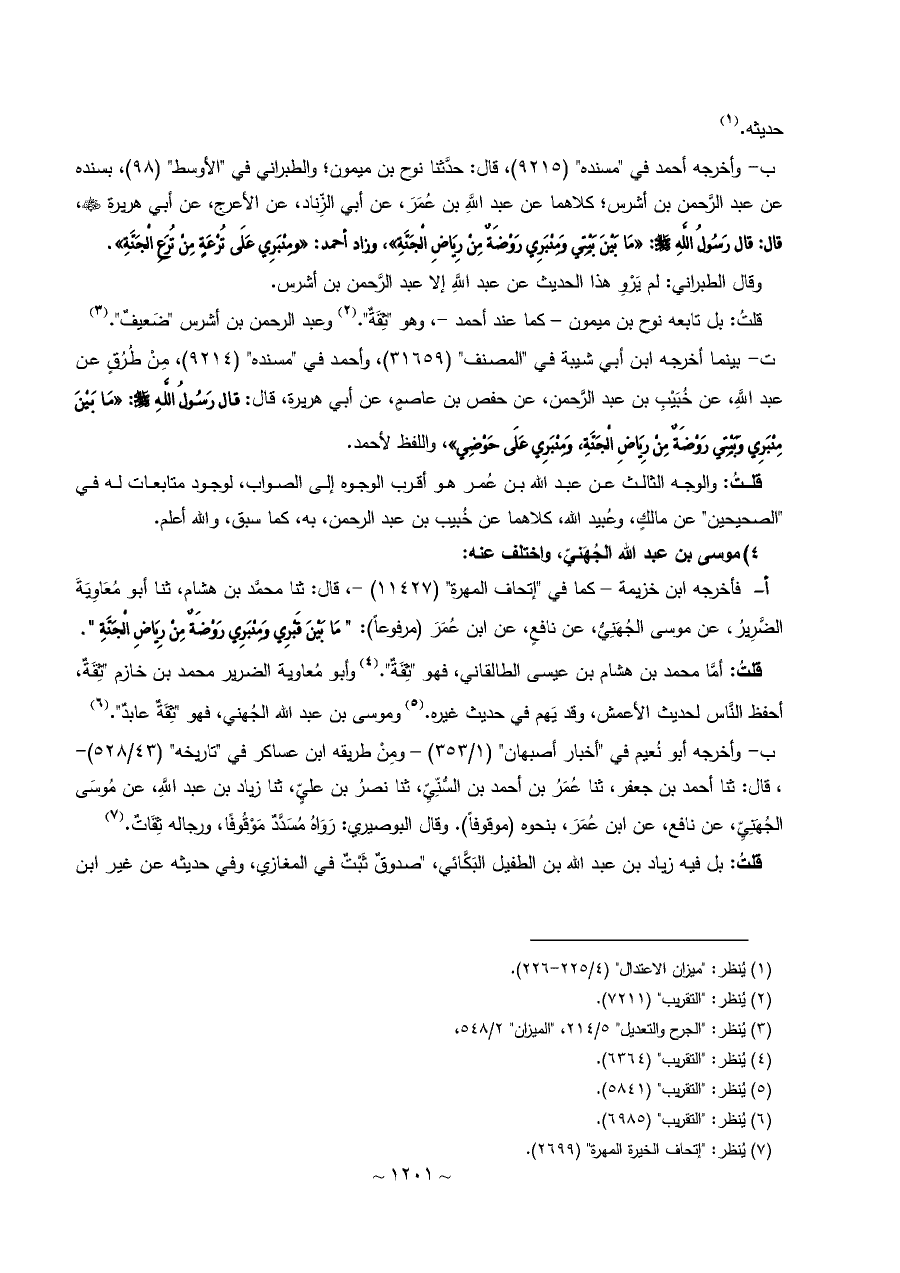 حديثه.(١)
ب- وأخرجه أحمد في "مسنده" (٩٢١٥)، قال: حدَّثنا نوح بن ميمون؛ والطبراني في "الأوسط" (٩٨)، بسنده
عن عبد الرَّحمن بن أشرس؛ كلاهما عن عبد اللَّهِ بن عُمَرَ، عن أبي الزِّناد، عن الأعرج، عن أبي هريرة ﷺ،
قال: قال رَسُولُ اللَّهِ ﷺ: «مَا بَيْنَ بَيْتِي وَمِنْبَرِي رَوْضَةٌ مِنْ رِيَاضِ الْجَنَّةِ»، وزاد أحمد: «ومِنْبَرِي عَلَى تُرْعَةٍ مِنْ تُرَعِ الْجَنَّةِ».
وقال الطبراني: لم يَرْوِ هذا الحديث عن عبد اللَّهِ إلا عبد الرَّحمن بن أشرس.
قلتُ: بل تابعه نوح بن ميمون – كما عند أحمد –، وهو "ثِقَةٌ".(٢) وعبد الرحمن بن أشرس "ضَعيفٌ".(٣)
ت- بينما أخرجه ابن أبي شيبة في "المصنف" (٣١٦٥٩)، وأحمد في "مسنده" (٩٢١٤)، مِنْ طُرُقٍ عن
عبد اللَّهِ، عن خُبَيْبِ بن عبد الرَّحمن، عن حفص بن عاصمٍ، عن أبي هريرة، قال: قال رَسُولُ اللَّهِ ﷺ: «مَا بَيْنَ
مِنْبَرِي وَبَيْتِي رَوْضَةٌ مِنْ رِيَاضِ الْجَنَّةِ، وَمِنْبَرِي عَلَى حَوْضِي»، واللفظ لأحمد.
قلتُ: والوجه الثالث عن عبد الله بن عُمر هو أقرب الوجوه إلى الصواب، لوجود متابعات له في
"الصحيحين" عن مالكٍ، وعُبيد الله، كلاهما عن خُبيب بن عبد الرحمن، به، كما سبق، والله أعلم.
٤) موسى بن عبد الله الجُهَنيّ، واختلف عنه:
أ- فأخرجه ابن خزيمة – كما في "إتحاف المهرة" (١١٤٢٧) –، قال: ثنا محمَّد بن هشام، ثنا أبو مُعَاوِيَةَ
الضَّرِيرُ، عن موسى الجُهَنِيُّ، عن نافعٍ، عن ابن عُمَرَ (مرفوعاً): " مَا بَيْنَ قَبْرِي وَمِنْبَرِي رَوْضَةٌ مِنْ رِيَاضِ الْجَنَّةِ ".
قلتُ: أمَّا محمد بن هشام بن عيسى الطالقاني، فهو "ثِقَةٌ".(٤) وأبو مُعاوية الضرير محمد بن خازم "ثِقَةٌ،
أحفظ النَّاس لحديث الأعمش، وقد يَهم في حديث غيره.(٥) وموسى بن عبد الله الجُهني، فهو "ثِقَةٌ عابدٌ".(٦)
ب- وأخرجه أبو نُعيم في "أخبار أصبهان" (٣٥٣/١) – ومِنْ طريقه ابن عساكر في "تاريخه" (٥٢٨/٤٣)-
، قال: ثنا أحمد بن جعفر، ثنا عُمَرُ بن أحمد بن السُّنِّيِّ، ثنا نصرُ بن عليٍّ، ثنا زياد بن عبد اللَّهِ، عن مُوسَى
الجُهَنِيِّ، عن نافع، عن ابن عُمَرَ، بنحوه (موقوفاً). وقال البوصيري: رَوَاهُ مُسَدَّدٌ مَوْقُوفًا، ورجاله ثِقَاتٌ.(٧)
قلتُ: بل فيه زياد بن عبد الله بن الطفيل البَكَّائي، "صدوقٌ ثَبْتٌ في المغازي، وفي حديثه عن غير ابن
(١) يُنظر: "ميزان الاعتدال" (٢٢٥/٤-٢٢٦).
(٢) يُنظر: "التقريب" (٧٢١١).
(٣) يُنظر: "الجرح والتعديل" ٢١٤/٥، "الميزان" ٥٤٨/٢،
(٤) يُنظر: "التقريب" (٦٣٦٤).
(٥) يُنظر: "التقريب" (٥٨٤١).
(٦) يُنظر: "التقريب" (٦٩٨٥).
(٧) يُنظر: "إتحاف الخيرة المهرة" (٢٦٩٩).
~ ١٢٠١ ~